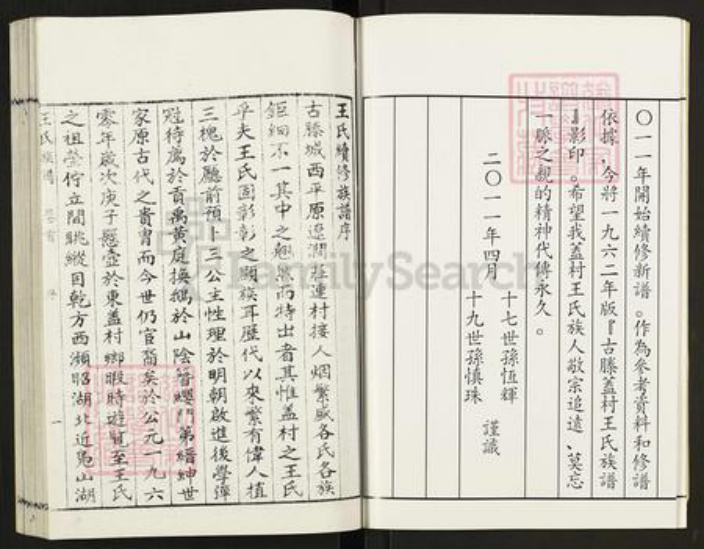 〇一一年開始續修新譜。作為參考資料和修譜
依據，今將一九六二年版『古滕蓋村王氏族譜
』影印。希望我蓋村王氏族人敬宗追遠、莫忘
一脈之親的精神代傳永久。
二〇一一年四月
十七世孫恆輝
十九世孫慎珠
謹識
王氏續修族譜序
古滕城西平原遼濶莊連村接人烟繁盛各氏各族
鉅細不一其中之翹然而特出者其惟蓋村之王氏
乎夫王氏固彰彰之顯族耳歷代以來繁有偉人植
三槐於廳前預卜三公主性理於明朝啟進後學彈
冠待薦於貢禹黃庭換鵝於山陰簪纓門第縉紳世
家原古代之貴胄而今世仍官裔矣於公元一九六
零年歲次庚子懸壺於東蓋村鄉暇時遊覽至王氏
之祖塋佇立間眺縱目乾方西瀕昭湖北近鳧山湖
王氏族譜
一
FamilySearch